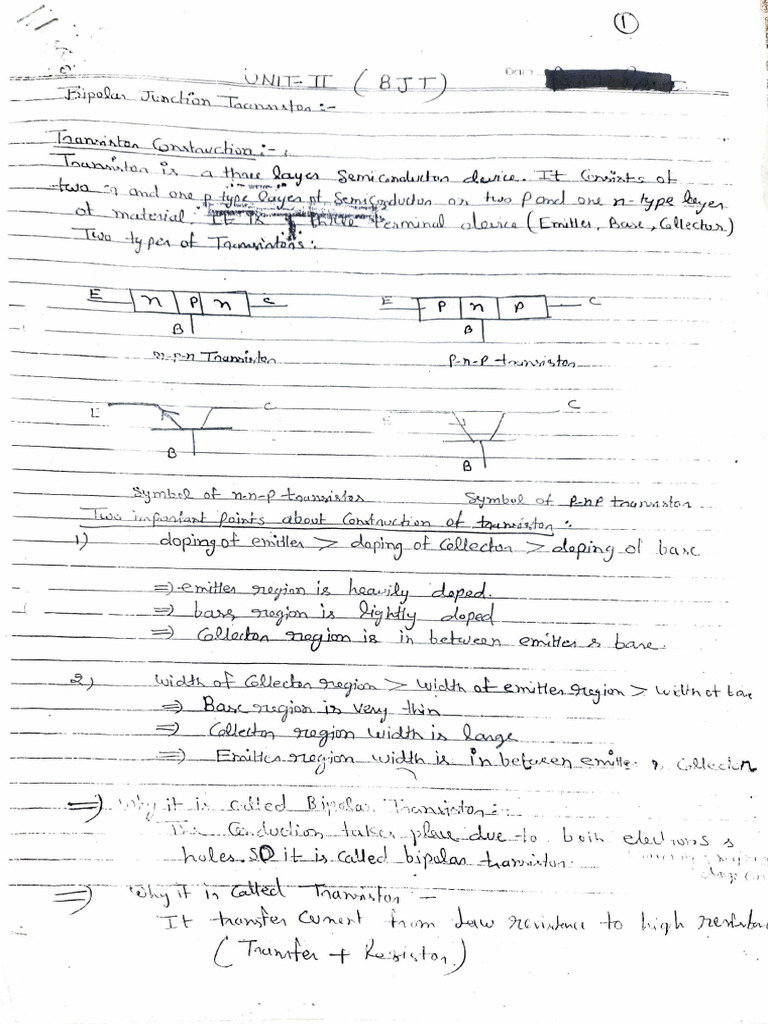 1
UNIT-II (BJT)
Bipolar Junction Transistor:-
Transistor Construction:-
Transistor is a three layer semiconductor device. It consists of
two n and one p type layer of semiconductor or two p and one n-type layer
of material. It is three terminal device (Emitter, Base, Collector)
Two types of Transistors:
E n p n C E p n p C
B B
n-p-n Transistor p-n-p transistor
E C E C
B B
Symbol of n-n-p transistor Symbol of p-n-p transistor
Two important points about construction of transistor:
1) doping of emitter > doping of collector > doping of base
⇒ emitter region is heavily doped.
⇒ base region is lightly doped
⇒ Collector region is in between emitter & base.
2) width of collector region > width of emitter region > width of base
⇒ Base region is very thin
⇒ Collector region width is large
⇒ Emitter region width is in between emitter & collector
⇒) Why it is called Bipolar Transistor:-
The conduction takes place due to both electrons &
holes. SO it is called bipolar transistor.
⇒) Why it is called Transistor -
It transfer current from low resistence to high resistence
(Transfer + Resistor.)